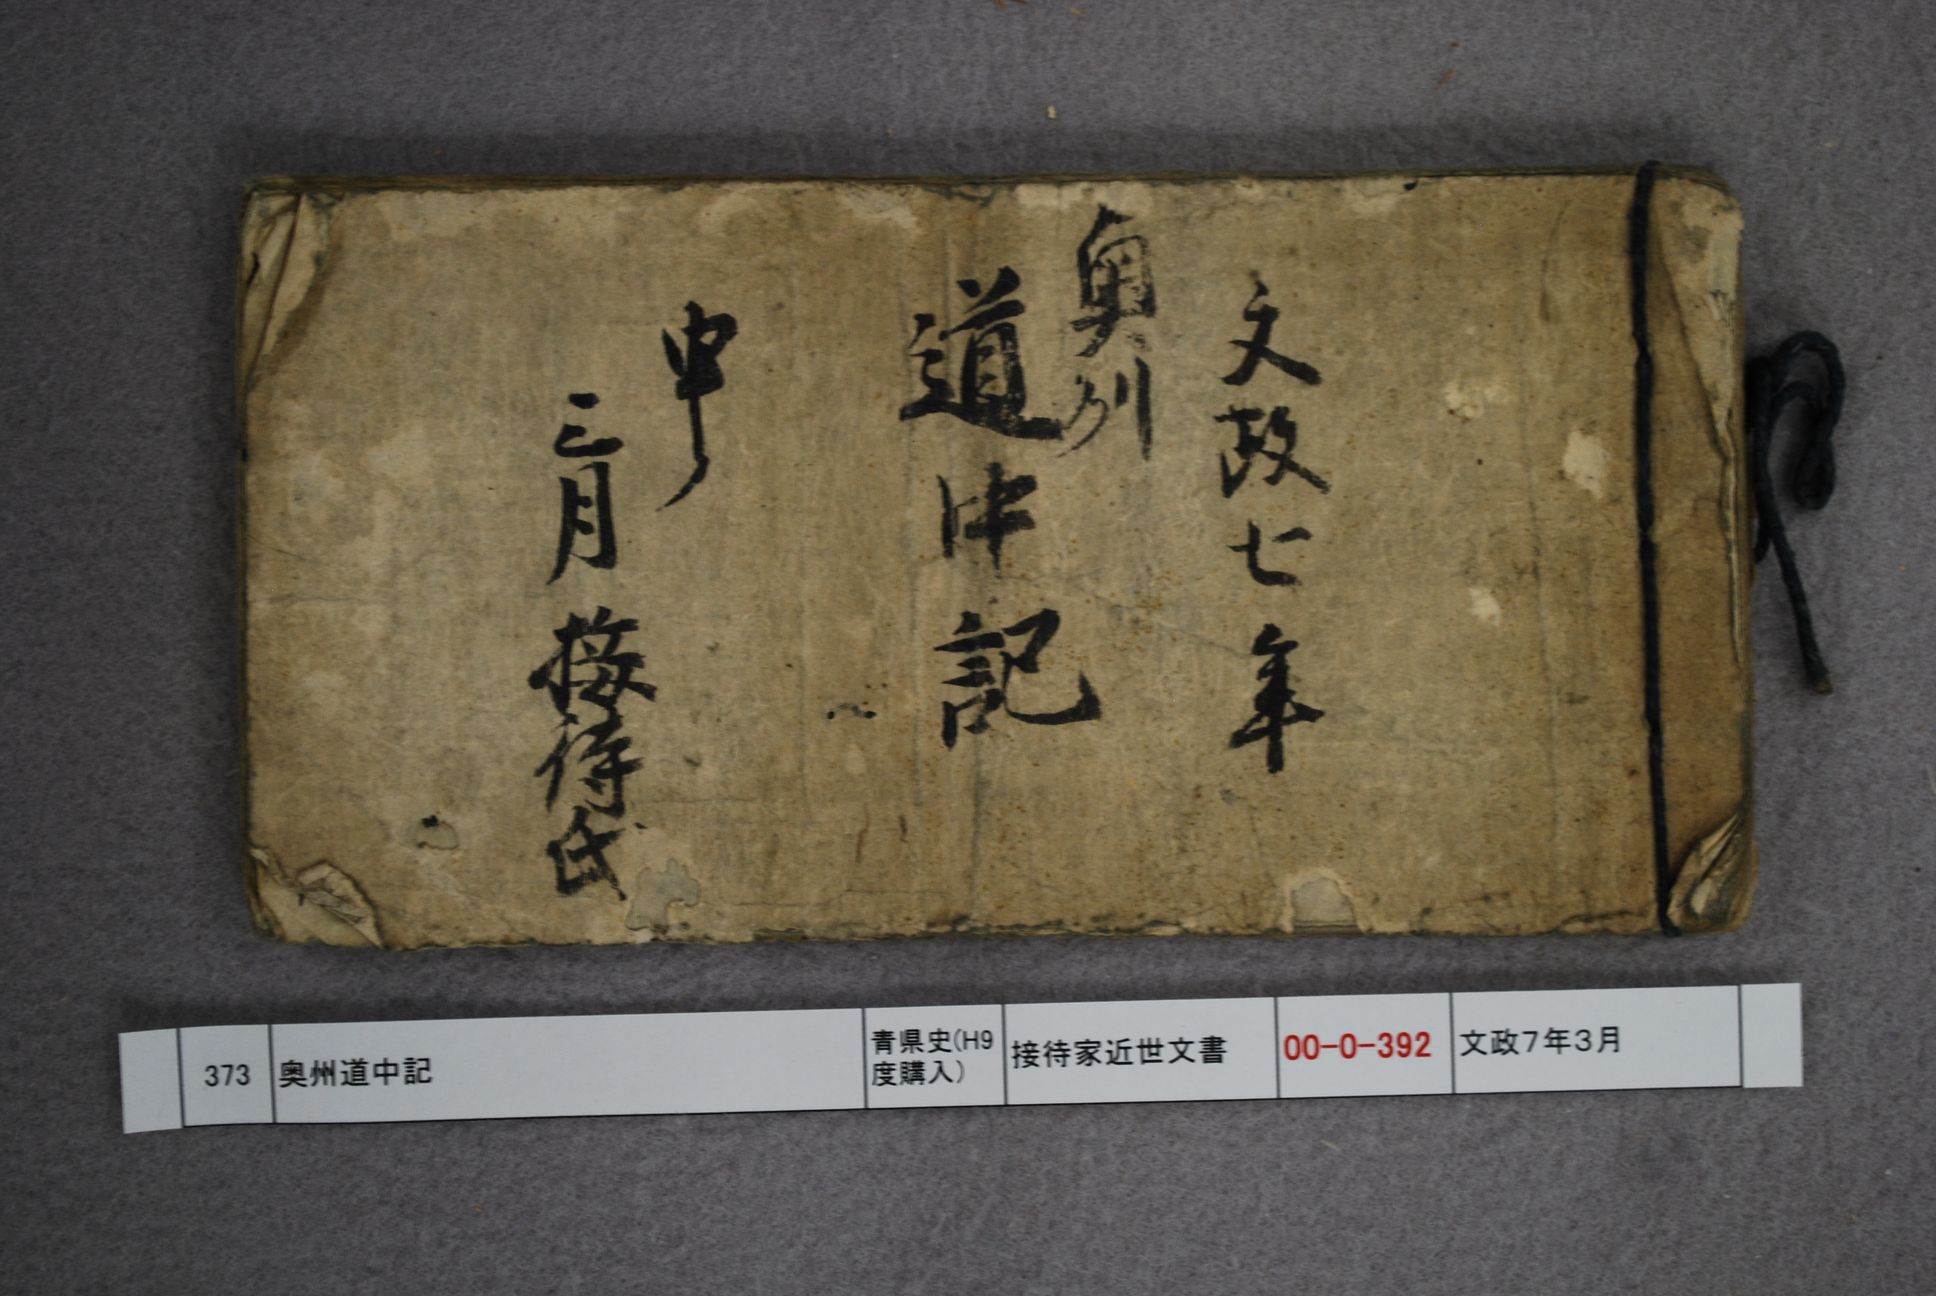 文政七年
奥州
道中記
申
三月 接待氏
373
奥州道中記
青県史(H9
度購入)
接待家近世文書
00-0-392
文政7年3月